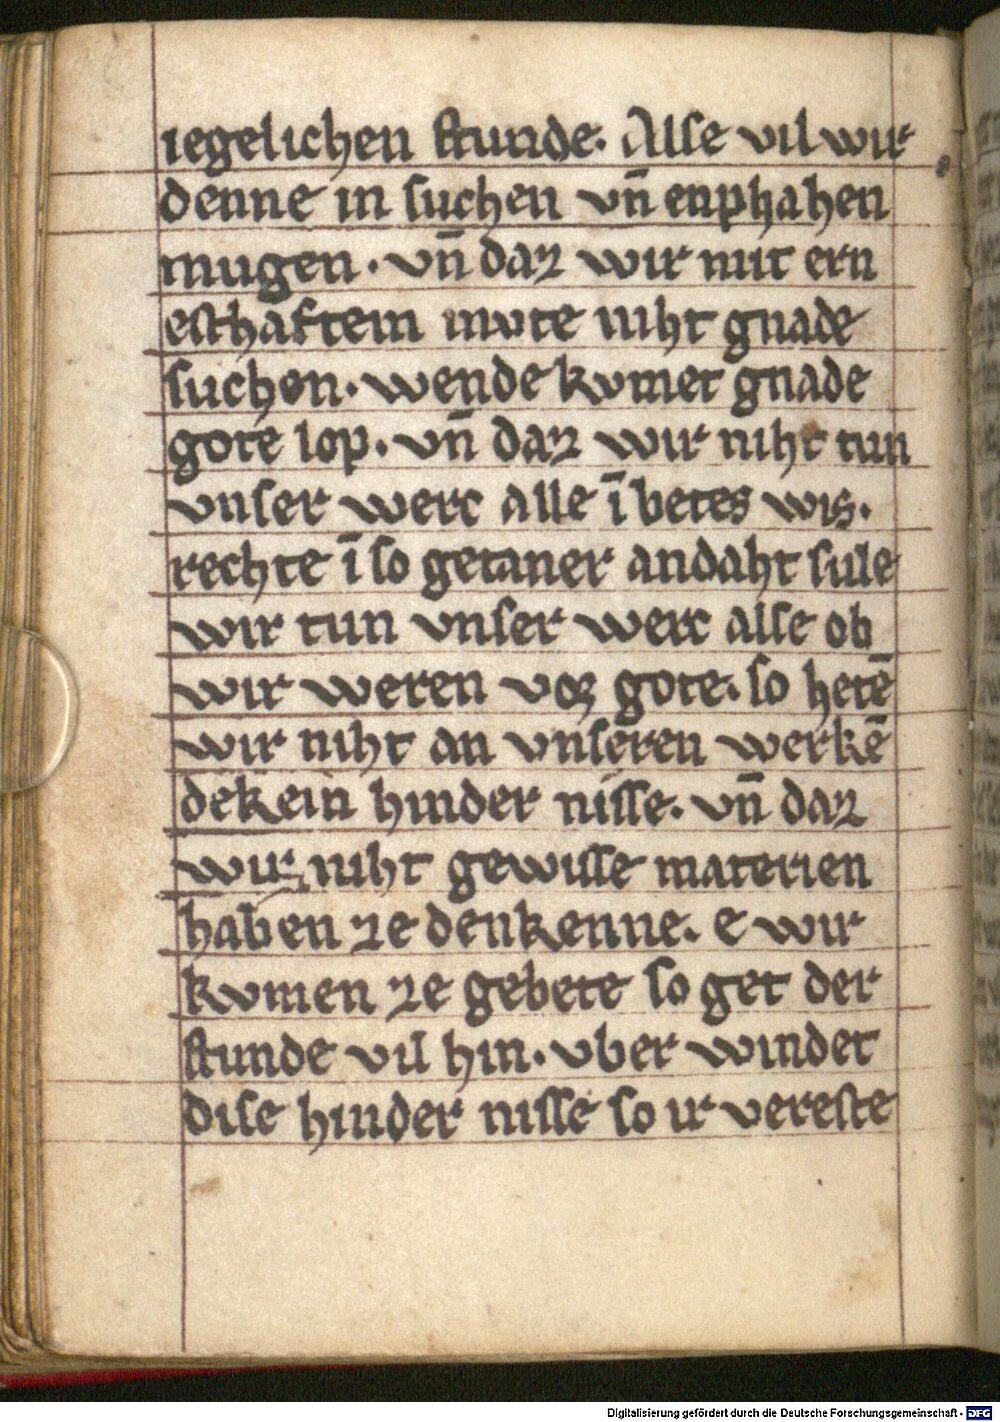 iegelichen stunde. Alse vil wir
denne in suchen vn̄ enphahen
mugen. vn̄ daz wir mit ern
esthaftem mvte niht gnade
suchen. wende kvmet gnade
gote lop. vn̄ daz wir niht tun
vnser werc alle ī betes wis.
rechte ī so getaner andaht sule
wir tun vnser werc alse ob
wir weren vor gote. so hetē
wir niht an vnseren werkē
dekein hinder nisse. vn̄ daz
wir niht gewisse materien
haben ze denkenne. e wir
kvmen ze gebete so get der
stunde vil hin. vber windet
dise hinder nisse so ir vereste
Digitalisierung gefördert durch die Deutsche Forschungsgemeinschaft - DFG